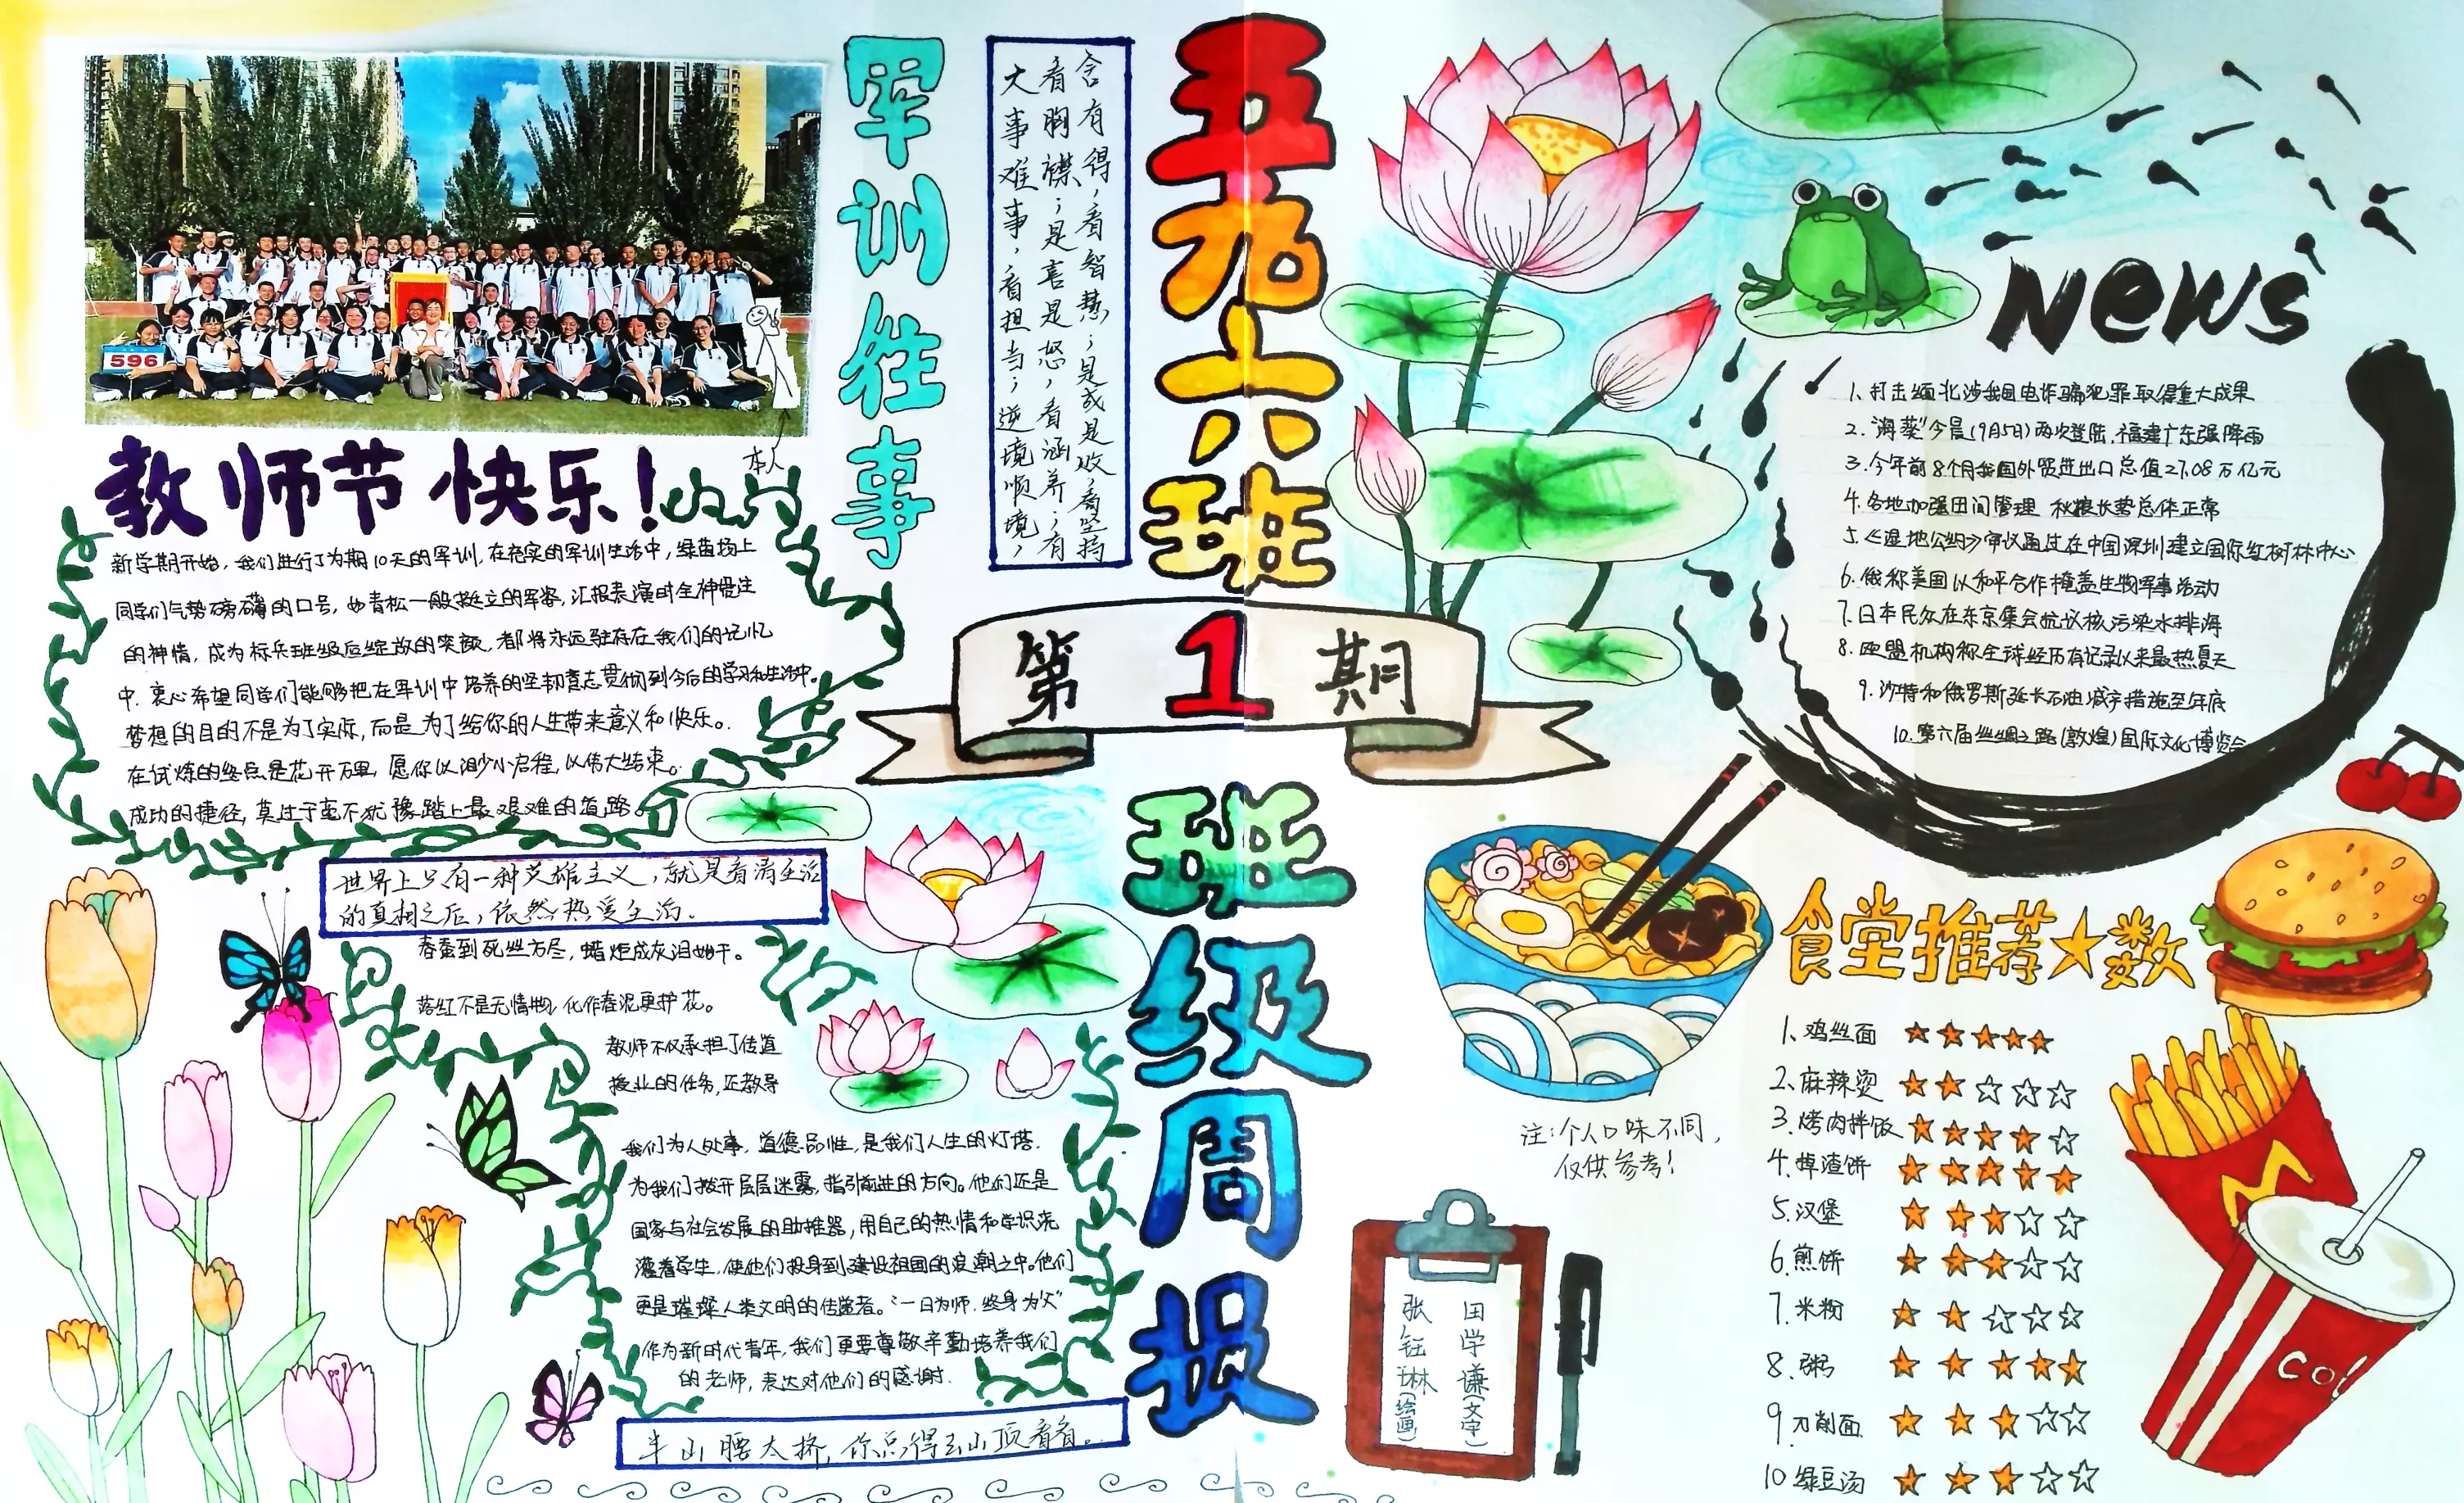 596
本人
军训往事
教师节快乐!
新学期开始，我们进行了为期10天的军训，在充实的军训生活中，绿茵场上
同学们气势磅礴的口号，如青松一般挺立的军姿，汇报表演时全神贯注
的神情，成为标兵班级后绽放的笑颜，都将永远驻存在我们的记忆
中。衷心希望同学们能够把在军训中培养的坚韧意志贯彻到今后的学习和生活中。
梦想的目的不是为了实际，而是为了给你的人生带来意义和快乐。
在试炼的终点是花开万里，愿你以渺小启程，以伟大结束。
成功的捷径，莫过于毫不犹豫踏上最艰难的道路。
大事难事，看担当；逆境顺境，
看胸襟；是喜是怒，看涵养；有
舍有得，看智慧；是成是败，看坚持
五九六班
第1期
班级周报
世界上只有一种英雄主义，就是看清生活
的真相之后，依然热爱生活。
春蚕到死丝方尽，蜡炬成灰泪始干。
落红不是无情物，化作春泥更护花。
教师不仅承担了传道
授业的任务，还教导
我们为人处事，道德品性，是我们人生的灯塔，
为我们拨开层层迷雾，指引前进的方向。他们还是
国家与社会发展的助推器，用自己的热情和学识浇
灌着学生，使他们投身到建设祖国的浪潮之中。他们
更是璀璨人类文明的传递者。“一日为师，终身为父”
作为新时代青年，我们更要尊敬辛勤培养我们
的老师，表达对他们的感谢.
半山腰太挤，你总得去山顶看看。
News
1、打击缅北涉我国电诈骗犯罪取得重大成果
2.“海葵”今晨(9月5日)两次登陆,福建广东强降雨
3.今年前8个月我国外贸进出口总值27.08万亿元
4.各地加强田间管理 秋粮长势总体正常
5.《湿地公约》审议通过在中国深圳建立国际红树林中心
6.俄称美国以和平合作掩盖生物军事活动
7.日本民众在东京集会抗议核污染水排海
8.欧盟机构称全球经历有记录以来最热夏天
9.沙特和俄罗斯延长石油减产措施至年底
10.第六届丝绸之路(敦煌)国际文化博览会
食堂推荐★数
1、鸡丝面 ★★★★★
2、麻辣烫 ★★☆☆☆
3、烤肉拌饭 ★★★★☆
4.掉渣饼 ★★★★★
5.汉堡 ★★★☆☆
6.煎饼 ★★★☆☆
7.米粉 ★★☆☆☆
8.粥 ★★★★★
9刀削面 ★★★☆☆
10绿豆汤 ★★★☆☆
注:个人口味不同，
仅供参考!
田学谦(文字)
张钰琳(绘画)
M
col